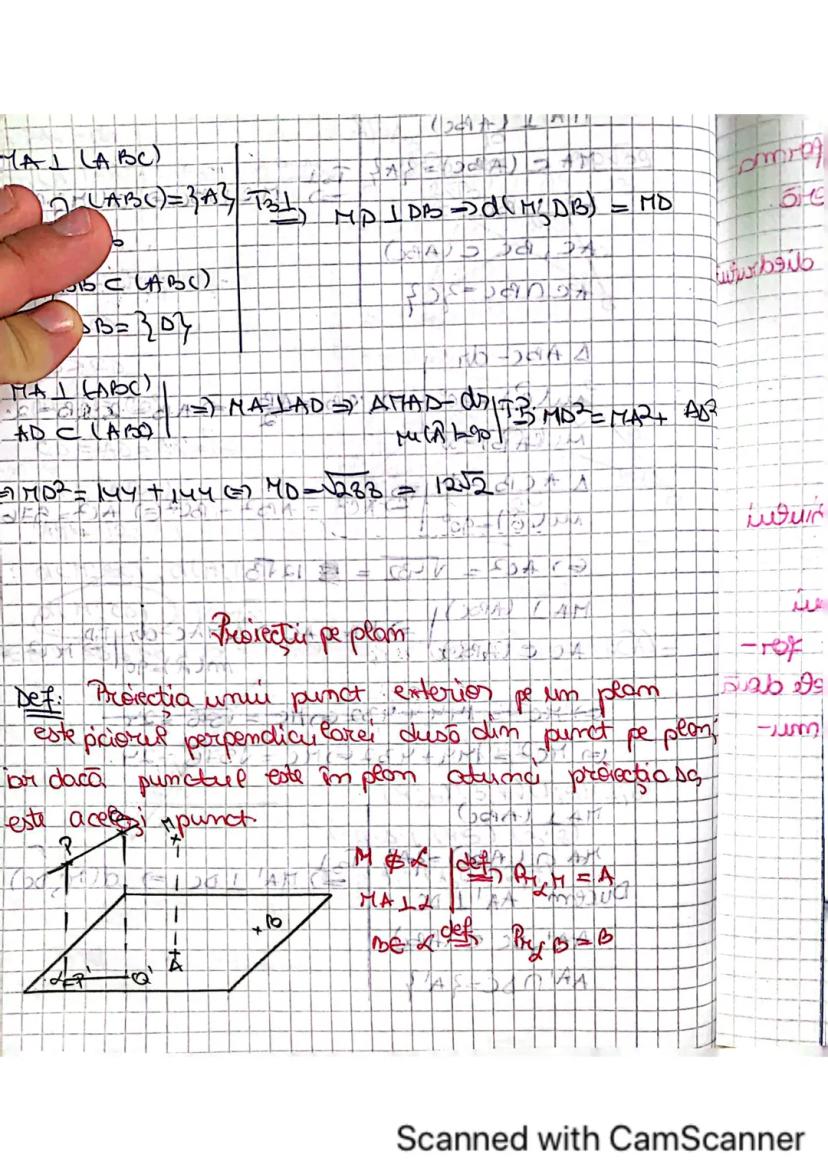 MA ⊥ (ABC)
(ABC) = {A} T3⊥ ⟹ MD ⊥ DB ⟹ d(M; DB) = MD
DB ⊂ (ABC)
DB = {D}
MA ⊥ (ABC)
AD ⊂ (ABC) | ⟹ MA ⊥ AD ⟹ ΔMAD - dr T.P. ⟹ MD² = MA² + AD²
⟹ MD² = 144 + 144 ⟺ MD = √288 = 12√2
Proiecții pe plan
Def: Proiecția unui punct exterior pe un plan
este piciorul perpendicularei dusă din punct pe plan,
iar dacă punctul este în plan atunci proiecția sa
este același punct.
P Q M
M ∉ α
MA ⊥ α | def ⟹ Pr α M = A
B
B ∈ α def ⟹ Pr α B = B
α P' Q' A
Scanned with CamScanner